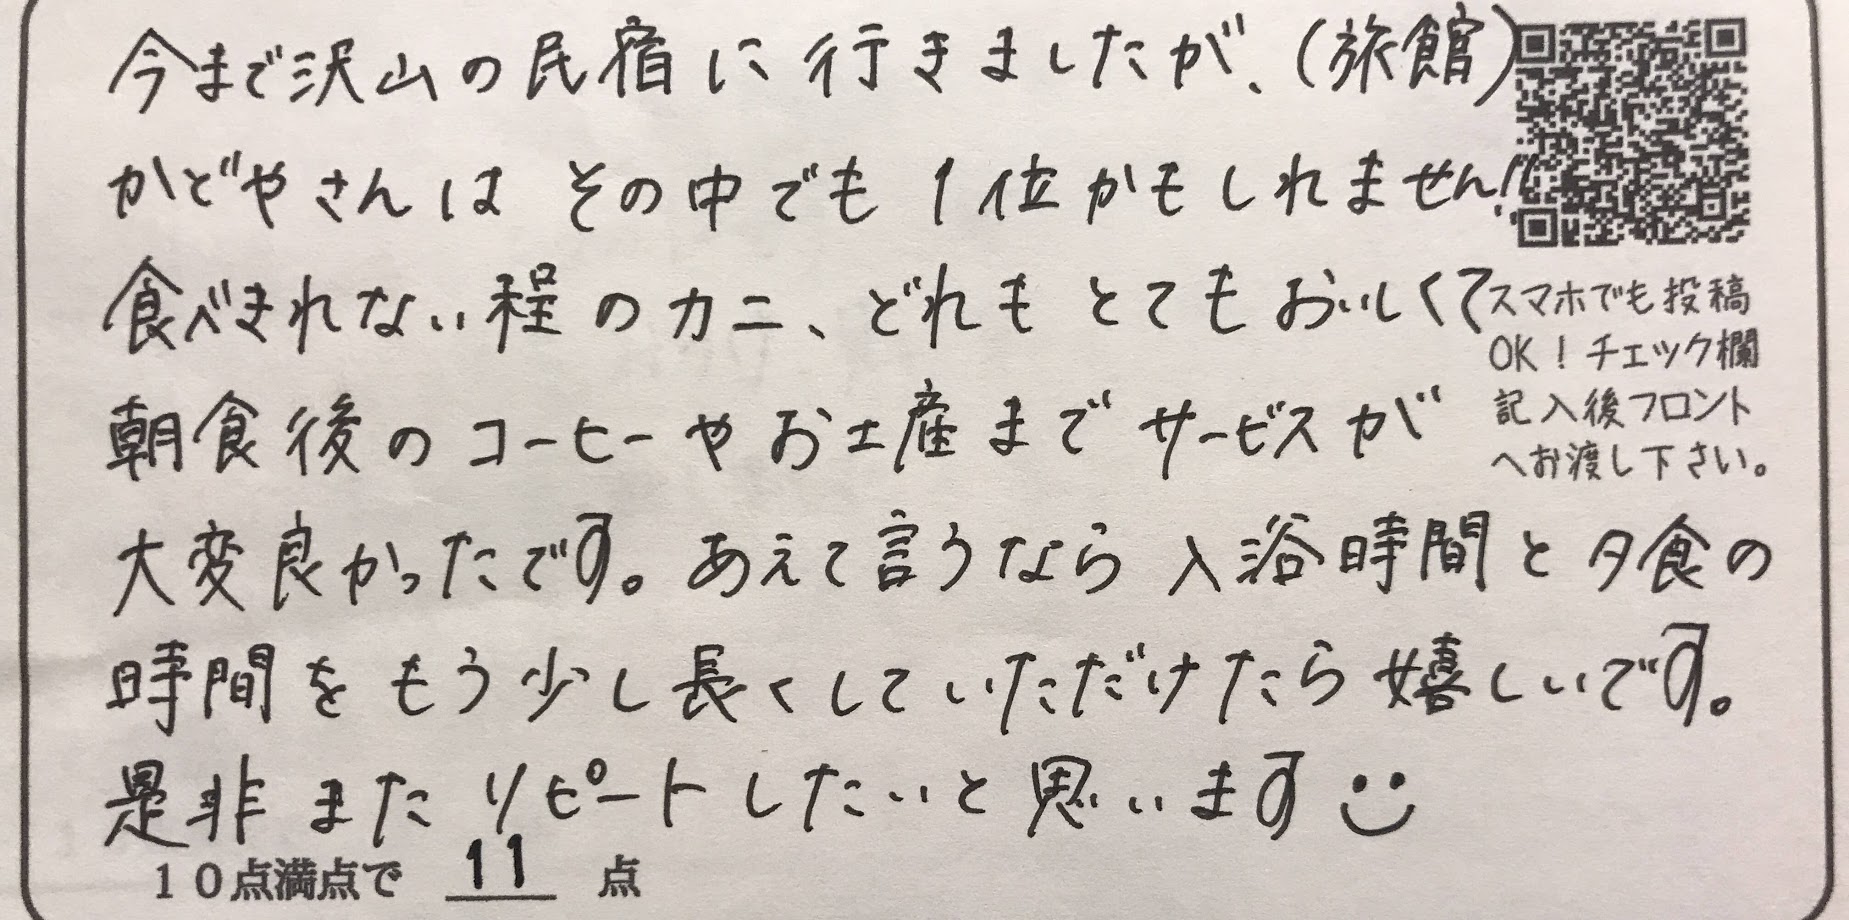 今まで沢山の民宿に行きましたが、(旅館)
かどやさんは その中でも 1位かもしれません!!
食べきれない程のカニ、どれもとてもおいしくて
スマホでも投稿
OK!チェック欄
記入後フロント
へお渡し下さい。
朝食後のコーヒーやお土産までサービスが
大変良かったです。あえて言うなら入浴時間と夕食の
時間をもう少し長くしていただけたら嬉しいです。
是非またリピートしたいと思います
10点満点で 11 点